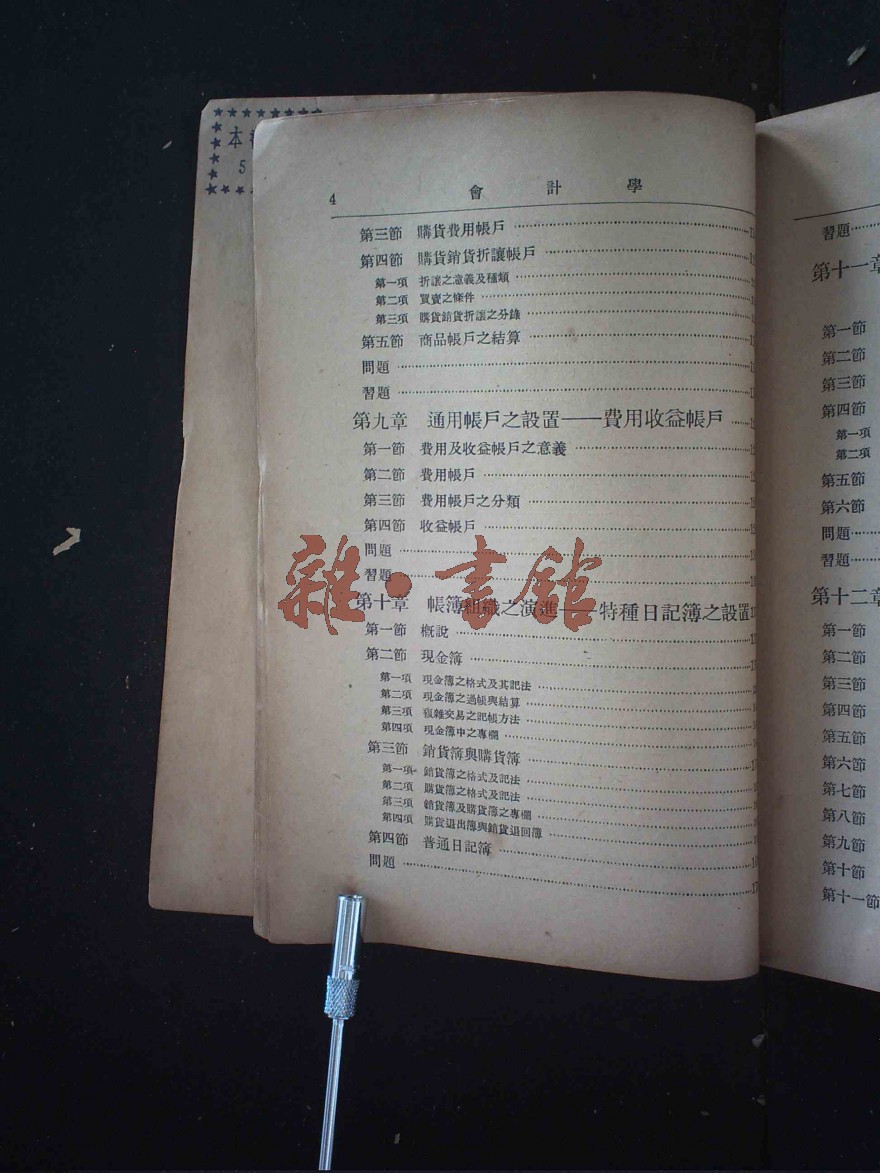 本
5
4 會計學
第三節 購貨費用帳戶
第四節 購貨銷貨折讓帳戶
第一項 折讓之意義及種類
第二項 買賣之條件
第三項 購貨銷貨折讓之分錄
第五節 商品帳戶之結算
問題
習題
第九章 通用帳戶之設置——費用收益帳戶
第一節 費用及收益帳戶之意義
第二節 費用帳戶
第三節 費用帳戶之分類
第四節 收益帳戶
問題
習題
第十章 帳簿組織之演進——特種日記簿之設置
第一節 概說
第二節 現金簿
第一項 現金簿之格式及其記法
第二項 現金簿之過帳與結算
第三項 複雜交易之記帳方法
第四項 現金簿中之專欄
第三節 銷貨簿與購貨簿
第一項 銷貨簿之格式及記法
第二項 購貨簿之格式及記法
第三項 銷貨簿及購貨簿之專欄
第四項 購貨退出簿與銷貨退回簿
第四節 普通日記簿
問題
習題
第十一章
第一節
第二節
第三節
第四節
第一項
第二項
第五節
第六節
問題
習題
第十二章
第一節
第二節
第三節
第四節
第五節
第六節
第七節
第八節
第九節
第十節
第十一節
雜·書館